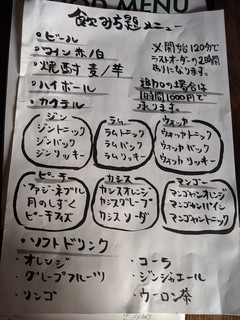 MENU
飲み放題メニュー
・ビール
・ワイン 赤/白
・焼酎 麦/芋
・ハイボール
・カクテル
※開始120分で
ラストオーダーの2時間
制になります。
追加の場合は
1時間1000円で
承ります。
ジン
ジントニック
ジンバック
ジンリッキー
ラム
ラムトニック
ラムバック
ラムリッキー
ウォッカ
ウォッカトニック
ウォッカバック
ウォッカリッキー
ピーチ
ファジーネーブル
月のしずく
ピーチフィズ
カシス
カシスオレンジ
カシスグレープ
カシスソーダ
マンゴー
マンゴヤンオレンジ
マンゴヤンパイン
マンゴヤントニック
・ソフトドリンク
・オレンジ
・グレープフルーツ
・リンゴ
・コーラ
・ジンジャエール
・ウーロン茶